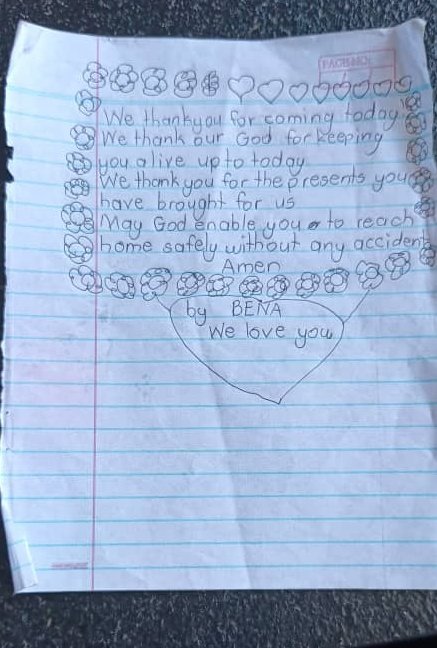 PAGE NO.
We thankyou for coming today.
We thank our God for keeping
you alive up to today.
We thank you for the presents you
have brought for us
May God enable you to reach
home safely without any accident
Amen
by BENA
We love you